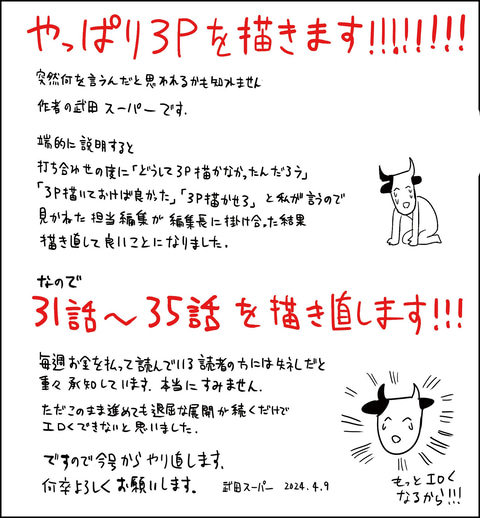 やっぱり3Pを描きます!!!!!!!!
突然何を言うんだと思われるかも知れません
作者の武田スーパーです.
端的に説明すると
打ち合わせの度に「どうして3P描かなかったんだろう」
「3P描いておけば良かった」「3P描かせろ」と私が言うので
見かねた担当編集が編集長に掛け合った結果
描き直して良いことになりました.
なので
31話〜35話を描き直します!!!
毎週お金を払って読んでいる読者の方には失礼だと
重々承知しています.本当にすみません.
ただこのまま進めても退屈な展開が続くだけで
エロくできないと思いました.
ですので今号からやり直します.
何卒よろしくお願いします.
武田スーパー 2024.4.9
もっとエロく
なるから!!!